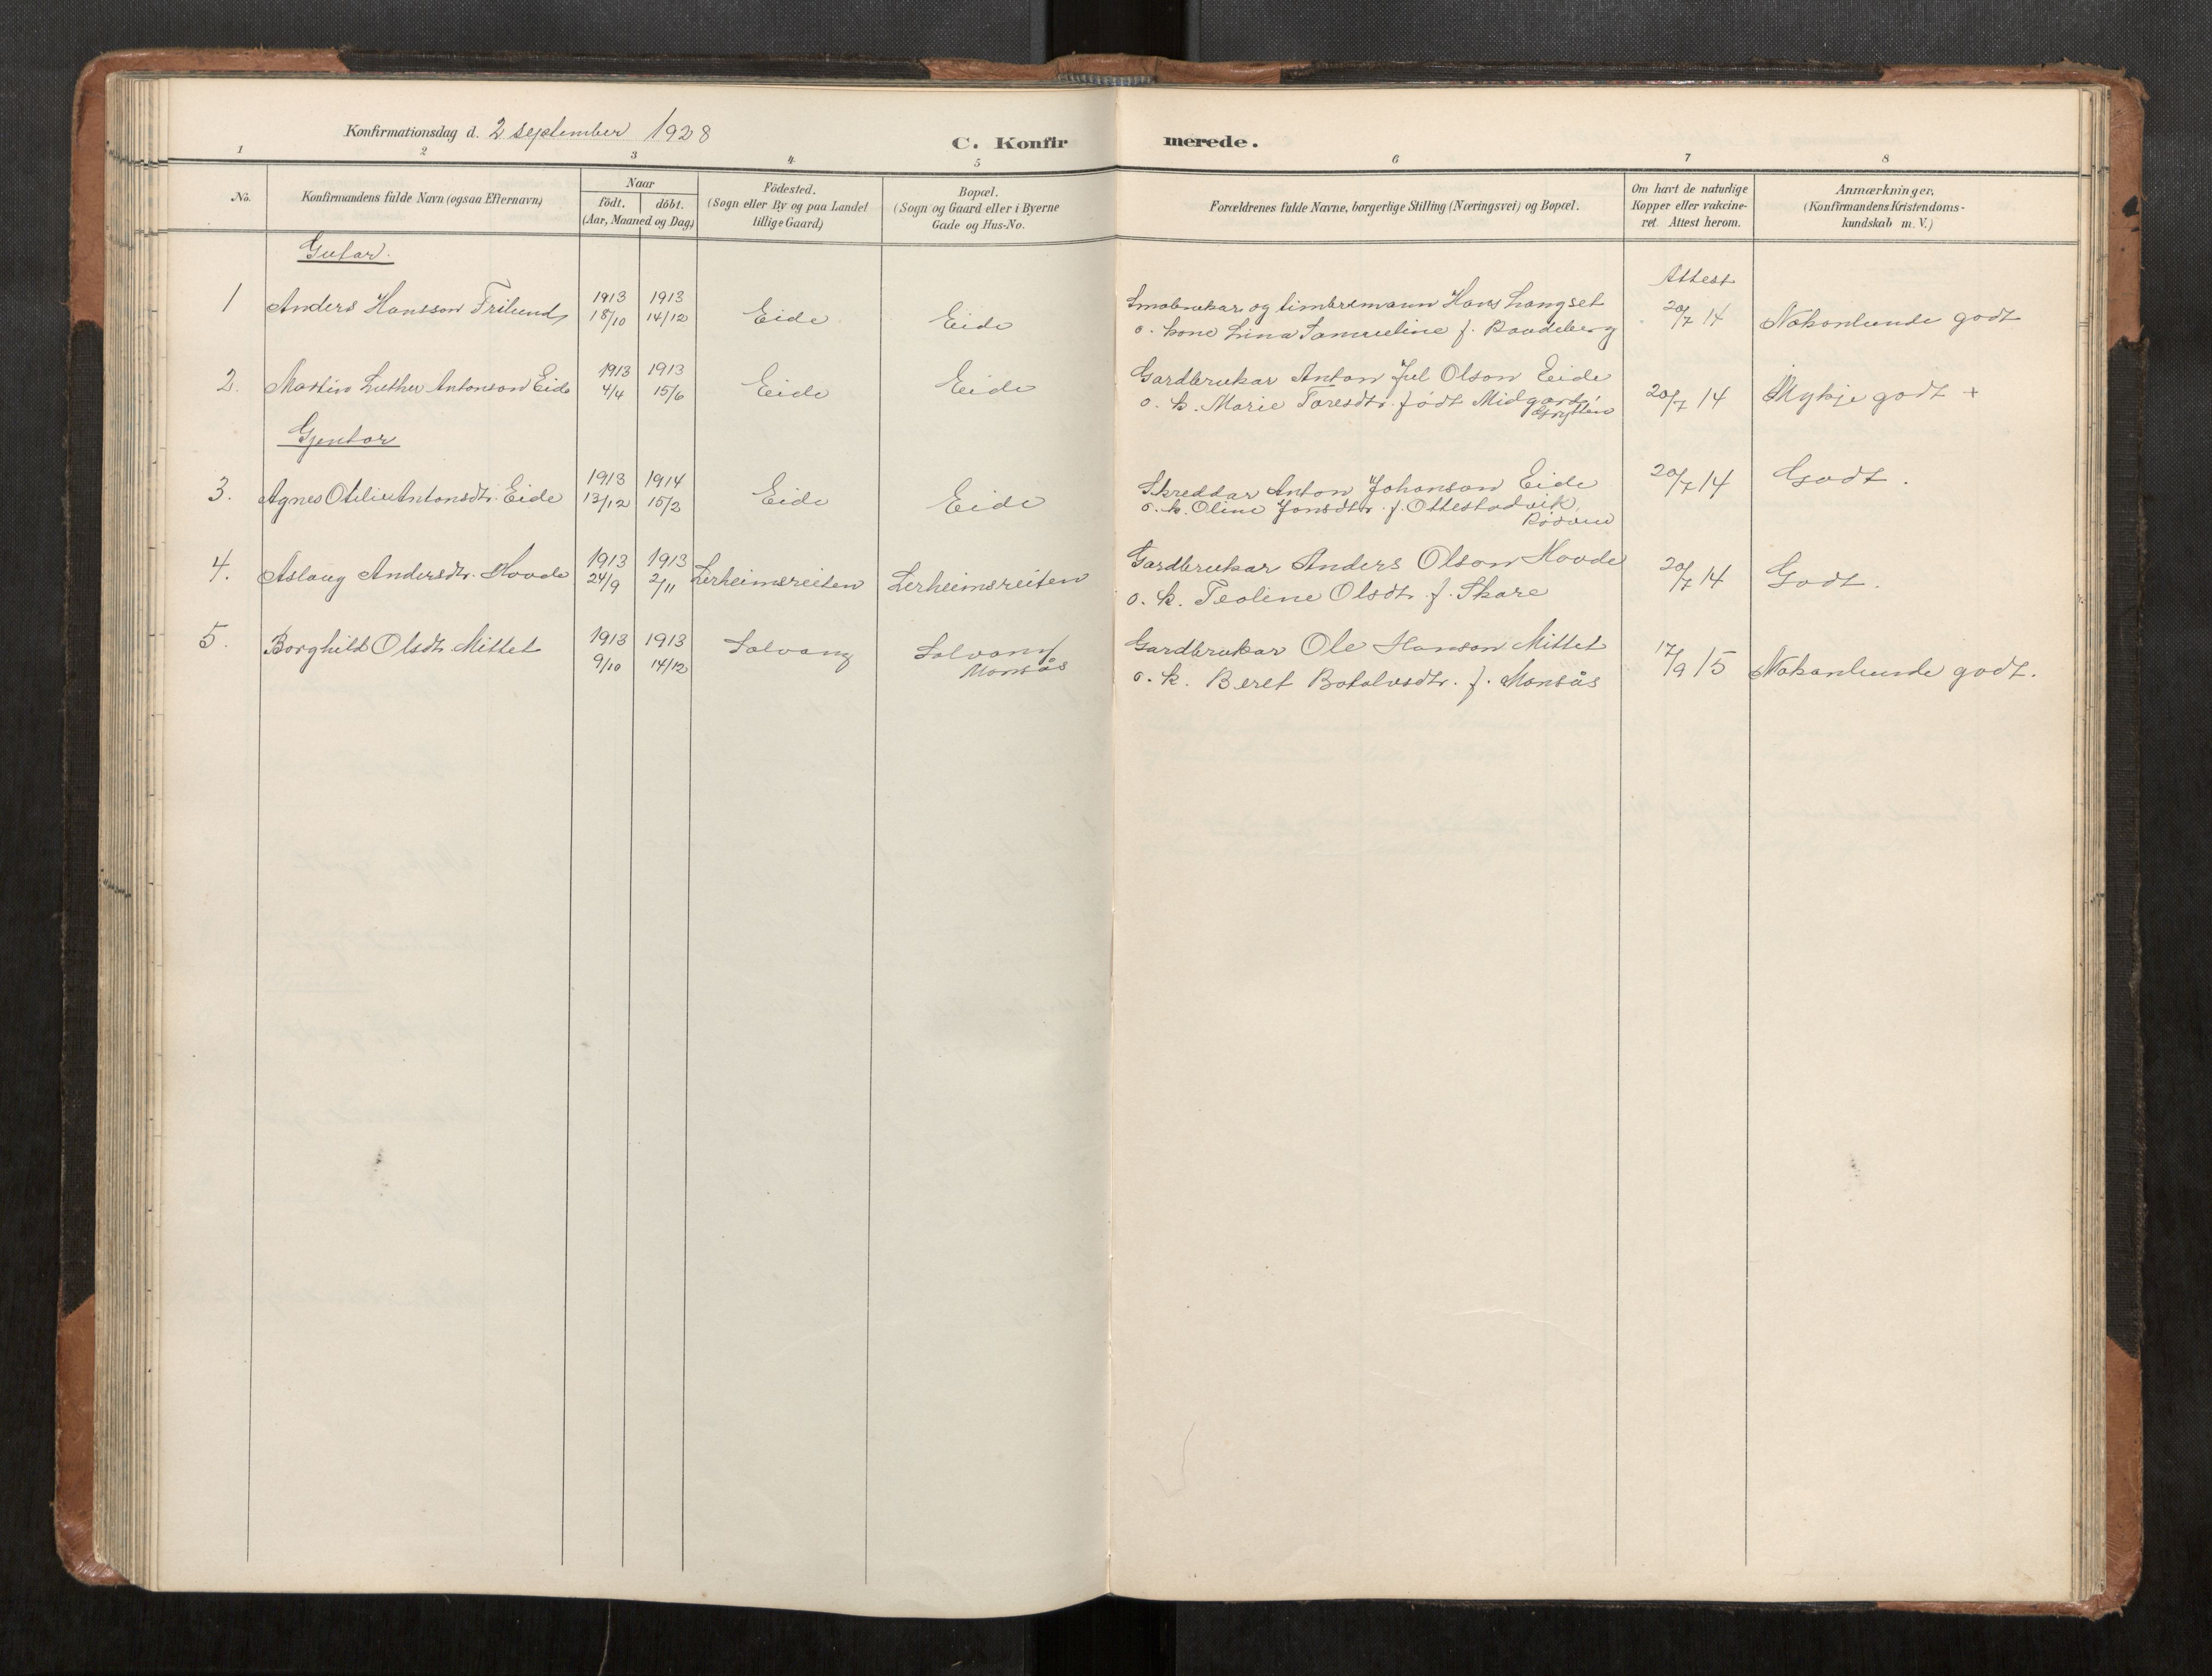 Konfirmationsdag d. 2 september 1928
C. Konfirmerede.
1 2 3 4 5 6 7 8
No.
Konfirmandens fulde Navn (ogsaa Efternavn)
Naar
födt. döbt.
(Aar, Maaned og Dag)
Födested.
(Sogn eller By og paa Landet
tillige Gaard)
Bopæl.
(Sogn og Gaard eller i Byerne
Gade og Hus-No.
Forældrenes fulde Navne, borgerlige Stilling (Næringsvei) og Bopæl.
Om havt de naturlige
Kopper eller vakcine-
ret. Attest herom.
Anmærkninger,
(Konfirmandens Kristendoms-
kundskab m. V.)
Gutar.
Attest
1 Anders Hansson Frilund 1913 18/10 1913 14/12 Eide Eide
Småbrukar og timbremann Hans Langset
o. kone Lina Samueline f. Raudeberg
20/7 14 Nokonlunde godt
2. Martin Luther Antonson Eide 1913 4/4 1913 15/6 Eide Eide
Gardbrukar Anton Jul Olson Eide
o. k. Marie Toresdtr. født Midgard,
Grytten
20/7 14 Mykje godt +
Gjentor
3. Agnes Otilie Antonsdtr. Eide 1913 13/12 1914 15/2 Eide Eide
Skreddar Anton Johanson Eide
o. k. Oline Jonsdtr. f. Ottestadvik,
Rødven
20/7 14 Godt.
4. Aslaug Andersdtr. Hovde 1913 24/9 1913 2/11 Lerheimsreiten Lerheimsreiten
Gardbrukar Anders Olson Hovde
o. k. Teoline Olsdtr. f. Skare
20/7 14 Godt.
5. Borghild Olsdtr Mittet 1913 9/10 1913 14/12 Solvang Solvang
Monsås
Gardbrukar Ole Hanson Mittet
o. k. Beret Botolvsdtr. f. Monsås
17/9 15 Nokonlunde godt.